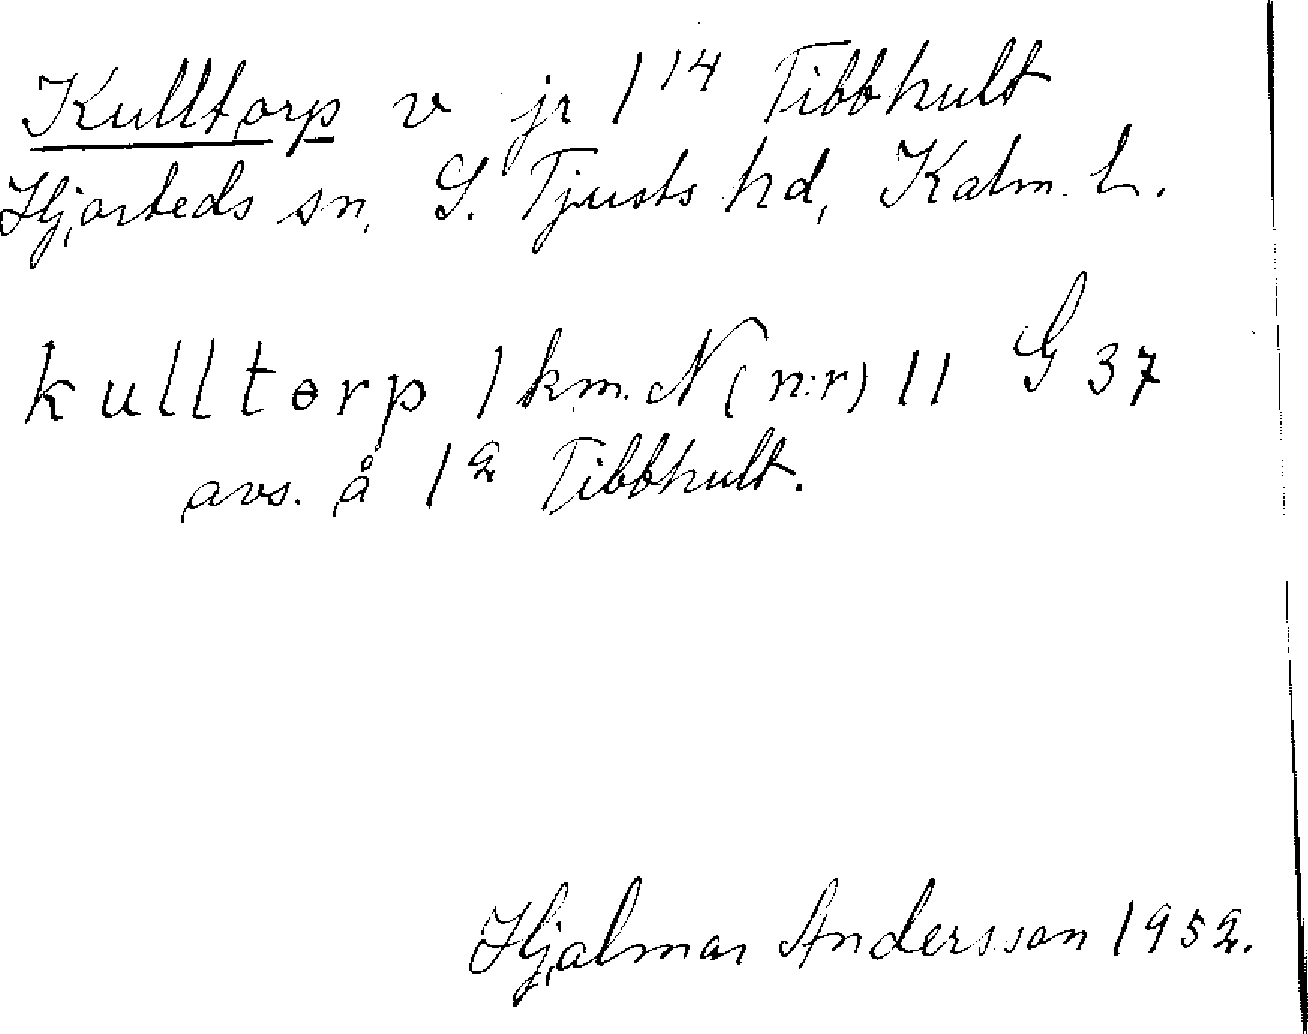 Kulltorp v jr 1¹⁴ Tibbhult
Hjorteds sn, S. Tjusts hd, Kalm. L.
kulltorp 1 km. N (n:r) 11 G 37
avs. å 1² Tibbhult.
Hjalmar Andersson 1952.